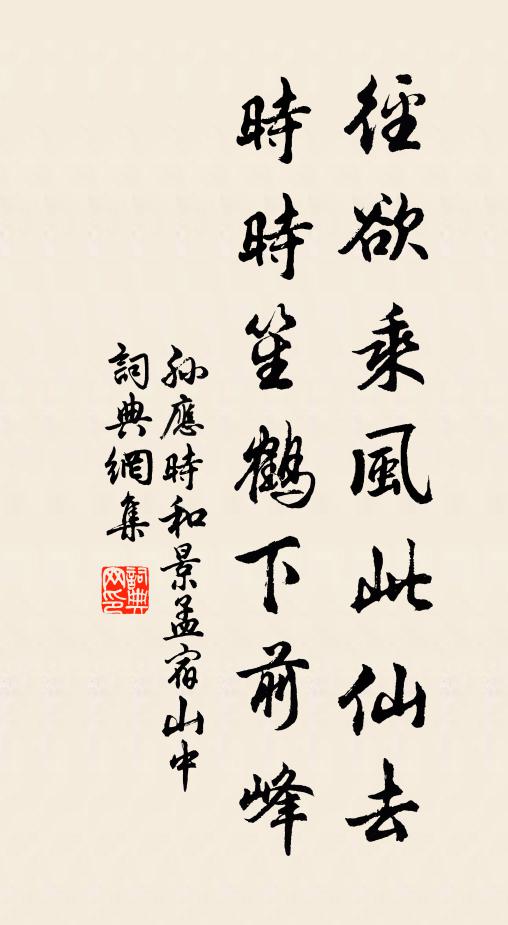 徑欲乘風此仙去
時時笙鶴下前峰
孫應時和景孟宿山中
詞典網集
詞典网印